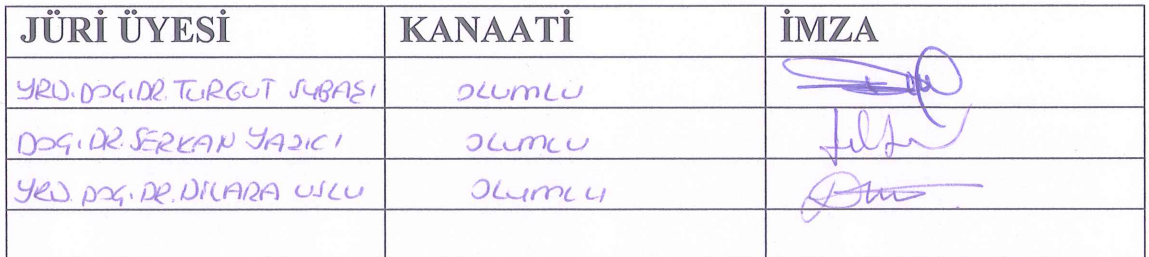 JÜRİ ÜYESİ KANAATİ İMZA
YRD.DOÇ.DR. TURGUT SUBAŞI OLUMLU
DOÇ.DR. SERKAN YAZICI OLUMLU
YRD. DOÇ. DR. DİLARA USLU OLUMLU